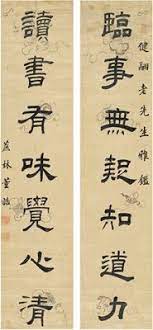 健老先生雅鑑
臨事無疑知道力
讀書有味覺心清
蔗林董誥